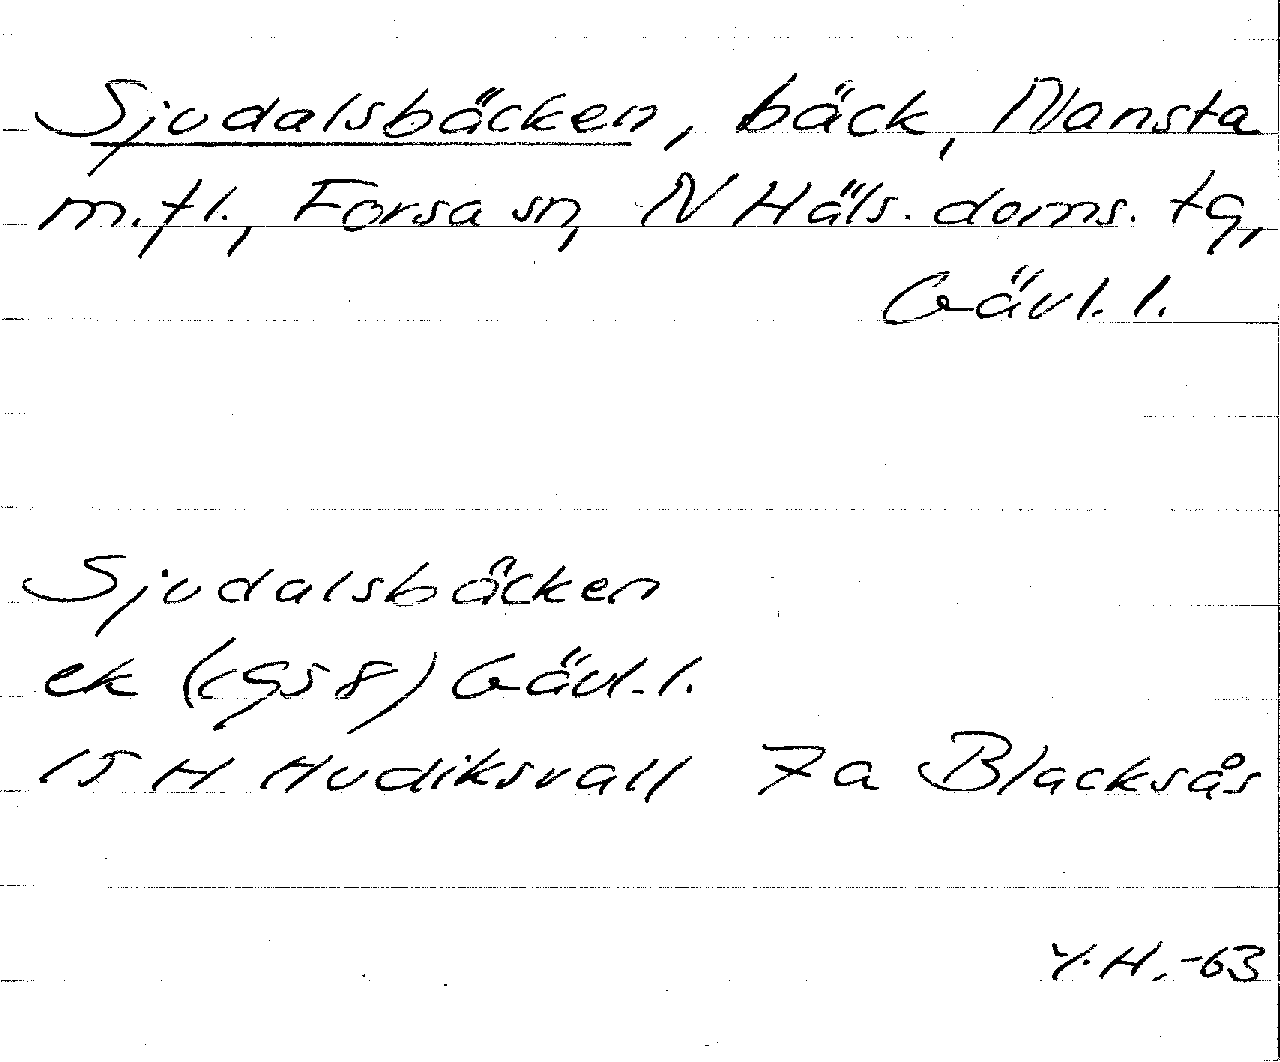 Sjudalsbäcken, bäck, Nansta
m.fl., Forsa sn, N Häls. doms. tg,
Gävl. l.
Sjudalsbäcken
ek (1958) Gävl. l.
15 H Hudiksvall 7a Blacksås
Y.H. -63